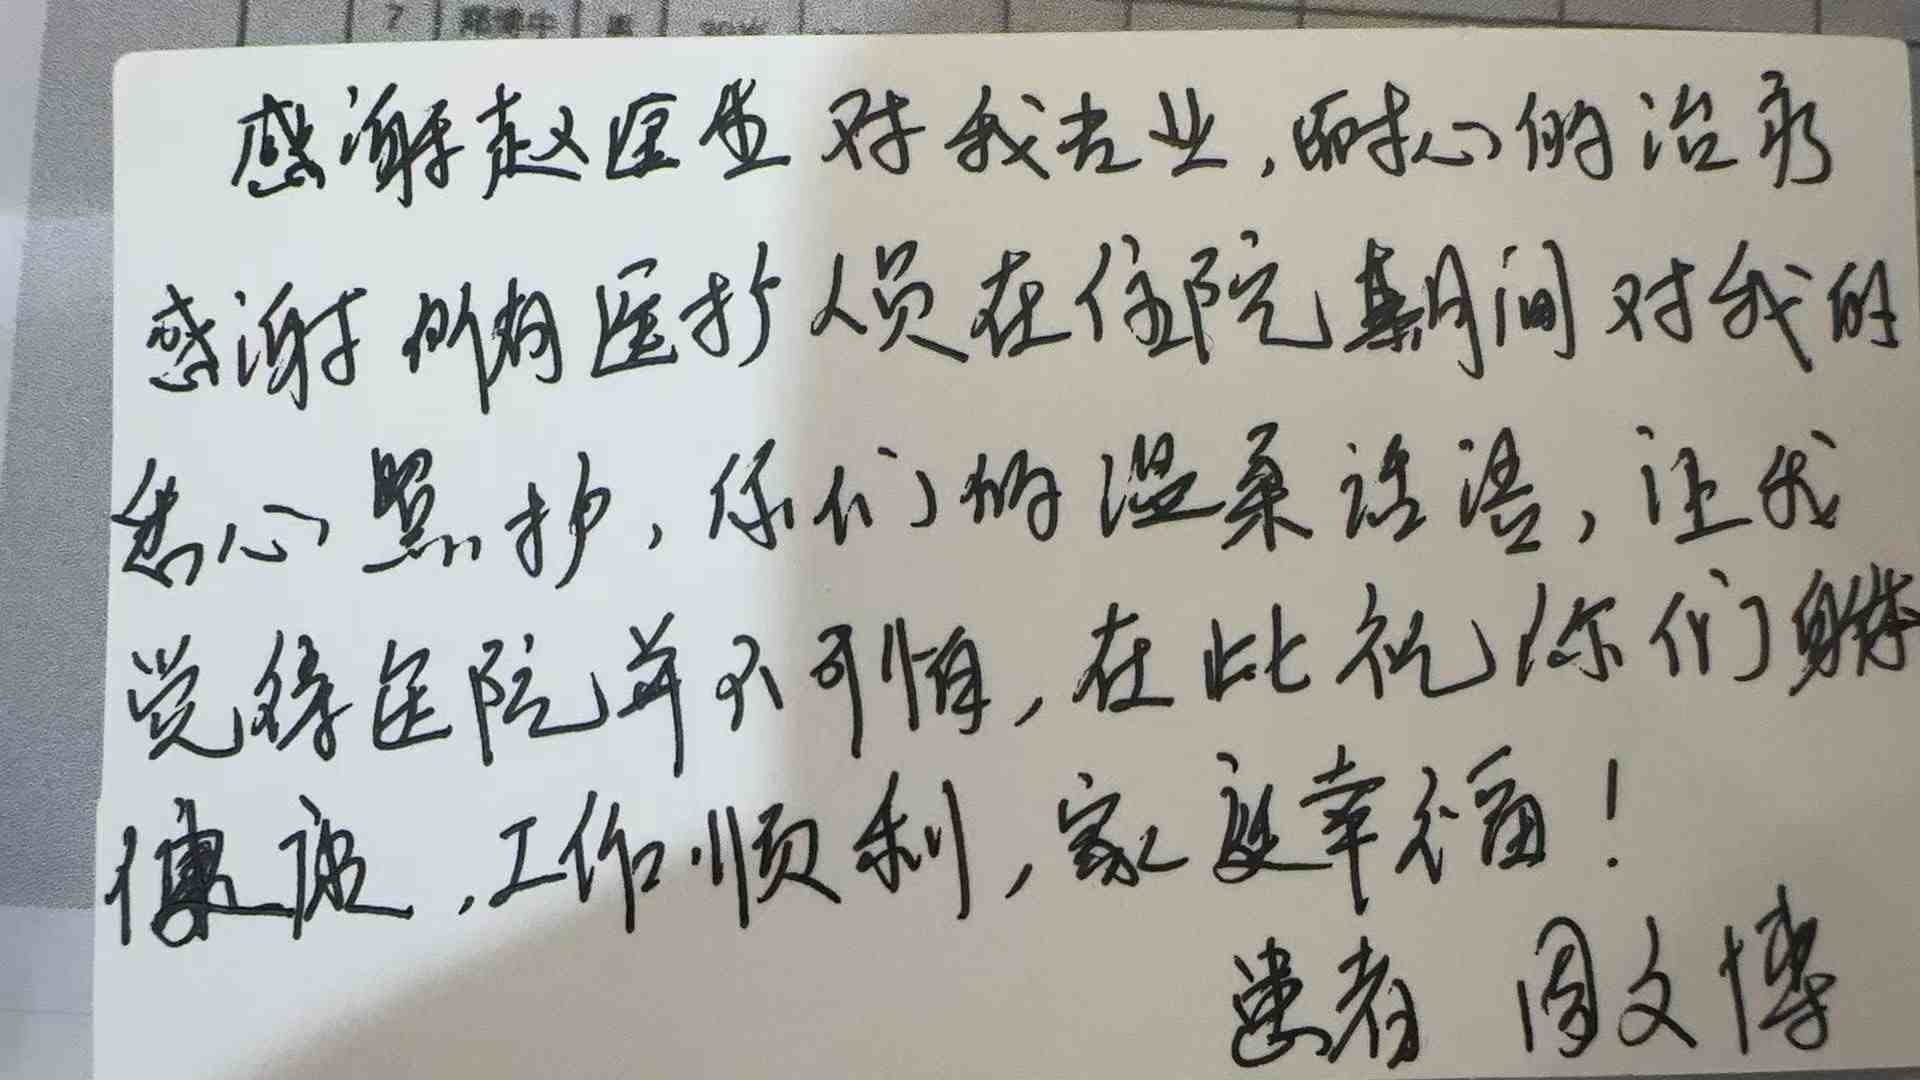 7
感谢赵医生对我专业,耐心的治疗
感谢所有医护人员在住院期间对我的
悉心照护,你们的温柔话语,让我
觉得医院并不可怕,在此祝你们身体
健康,工作顺利,家庭幸福!
患者 周文博